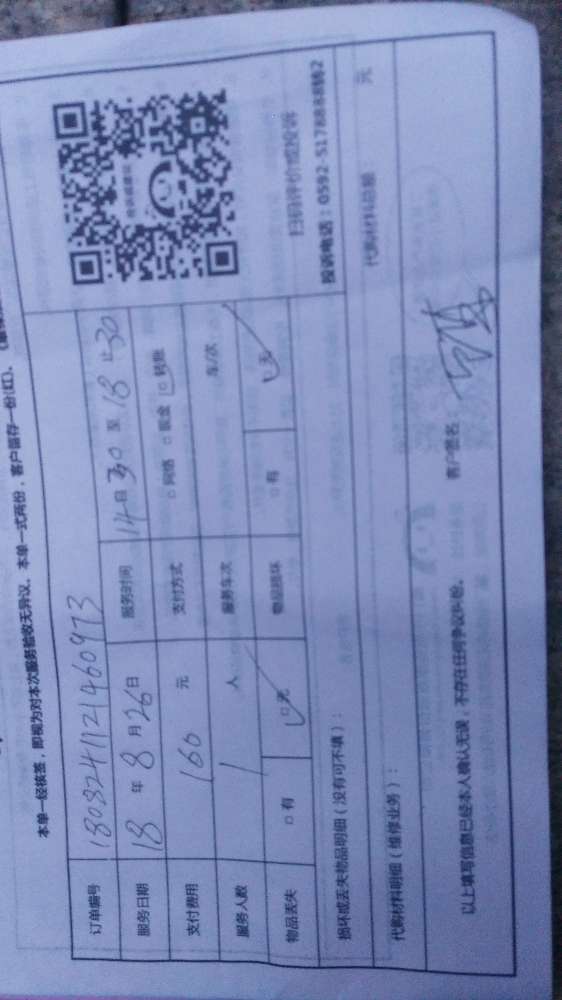 本单一经核签，即视为对本次服务验收无异议。本单一式两份，客户留存一份(红)。
订单编号 1808241121460973
服务日期 18 年 8 月 26 日 服务时间 14 30 至 18 30
支付费用 160 元 支付方式 □ 网络 □ 现金 □ 转账
服务人数 1 人 服务车次 车/次
物品丢失 □ 有 □ 无 物品损坏 □ 有 □ 无
扫码评价或投诉
损坏或丢失物品明细（没有可不填）：
代购材料明细（维修业务）： 代购材料总额： 元
以上填写信息已经本人确认无误，不存在任何争议纠纷。 客户签名